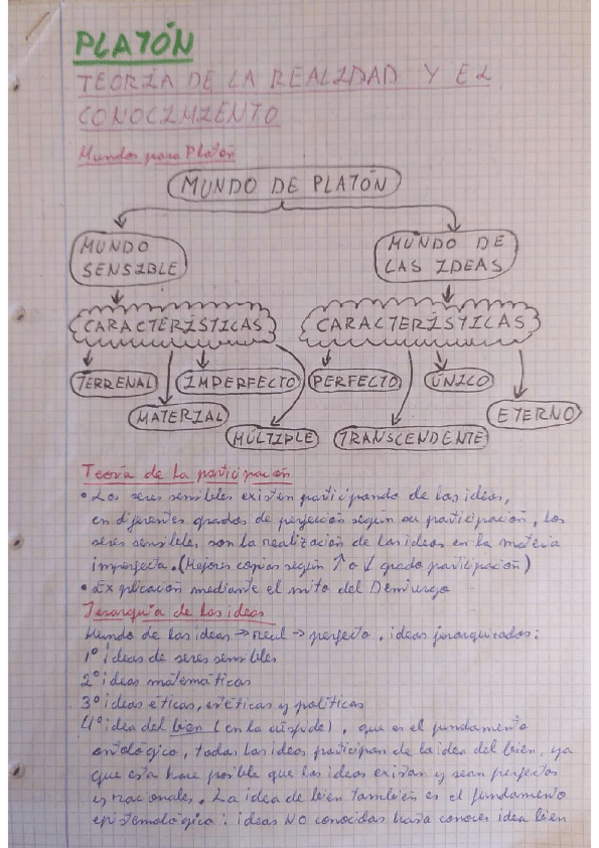 PLATÓN
TEORÍA DE LA REALIDAD Y EL
CONOCIMIENTO
Mundos para Platón
MUNDO DE PLATÓN
MUNDO
SENSIBLE
MUNDO DE
LAS IDEAS
CARACTERÍSTICAS
CARACTERÍSTICAS
TERRENAL
IMPERFECTO
PERFECTO
ÚNICO
MATERIAL
ETERNO
MÚLTIPLE
TRANSCENDENTE
Teoría de la participación
• Los seres sensibles existen participando de las ideas,
en diferentes grados de perfección según su participación, los
seres sensibles, son la realización de las ideas en la materia
imperfecta. (Mejores copias según ↑ o ↓ grado participación)
• Explicación mediante el mito del Demiurgo
Jerarquía de las ideas
Mundo de las ideas → real → perfecto, ideas jerarquizadas:
1º ideas de seres sensibles
2º ideas matemáticas
3º ideas éticas, estéticas y políticas
4º idea del bien (en la cúspide), que es el fundamento
ontológico, todas las ideas participan de la idea del bien, ya
que esta hace posible que las ideas existan y sean perfectas
y racionales. La idea de bien también es el fundamento
epistemológico: ideas NO conocidas hasta conocer idea bien